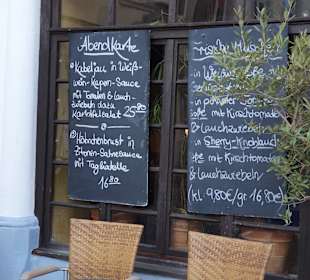 Abendkarte
Kabeljau in Weiß-
wein-Kapern-Sauce
mit Tomaten & Lauch-
zwiebeln dazu
Kartoffelsalat 25,80
Hähnchenbrust in
Zitronen-Sahnesauce
mit Tagliatelle
16,80
Frische Muscheln
in
in
mit Kirschtomate
& Lauchzwiebeln
in Sherry-Knoblauch
mit Kirschtomaten
& Lauchzwiebeln
(kl. 9,80€/gr. 16,80€)